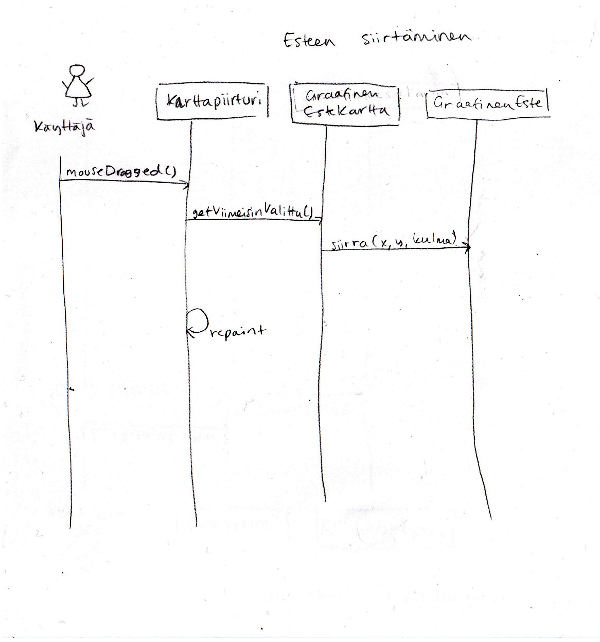 Esteen siirtäminen
Käyttäjä
Karttapiirturi
Graafinen
EsteKartta
GraafinenEste
mouseDragged()
getViimeisinValittu()
siirra(x, y, kulma)
repaint